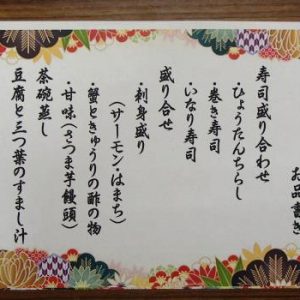 お品書き
寿司盛り合わせ
・ひょうたんちらし
・巻き寿司
・いなり寿司
盛り合せ
・刺身盛り
（サーモン・はまち）
・蟹ときゅうりの酢の物
・甘味（さつま芋饅頭）
茶碗蒸し
豆腐と三つ葉のすまし汁